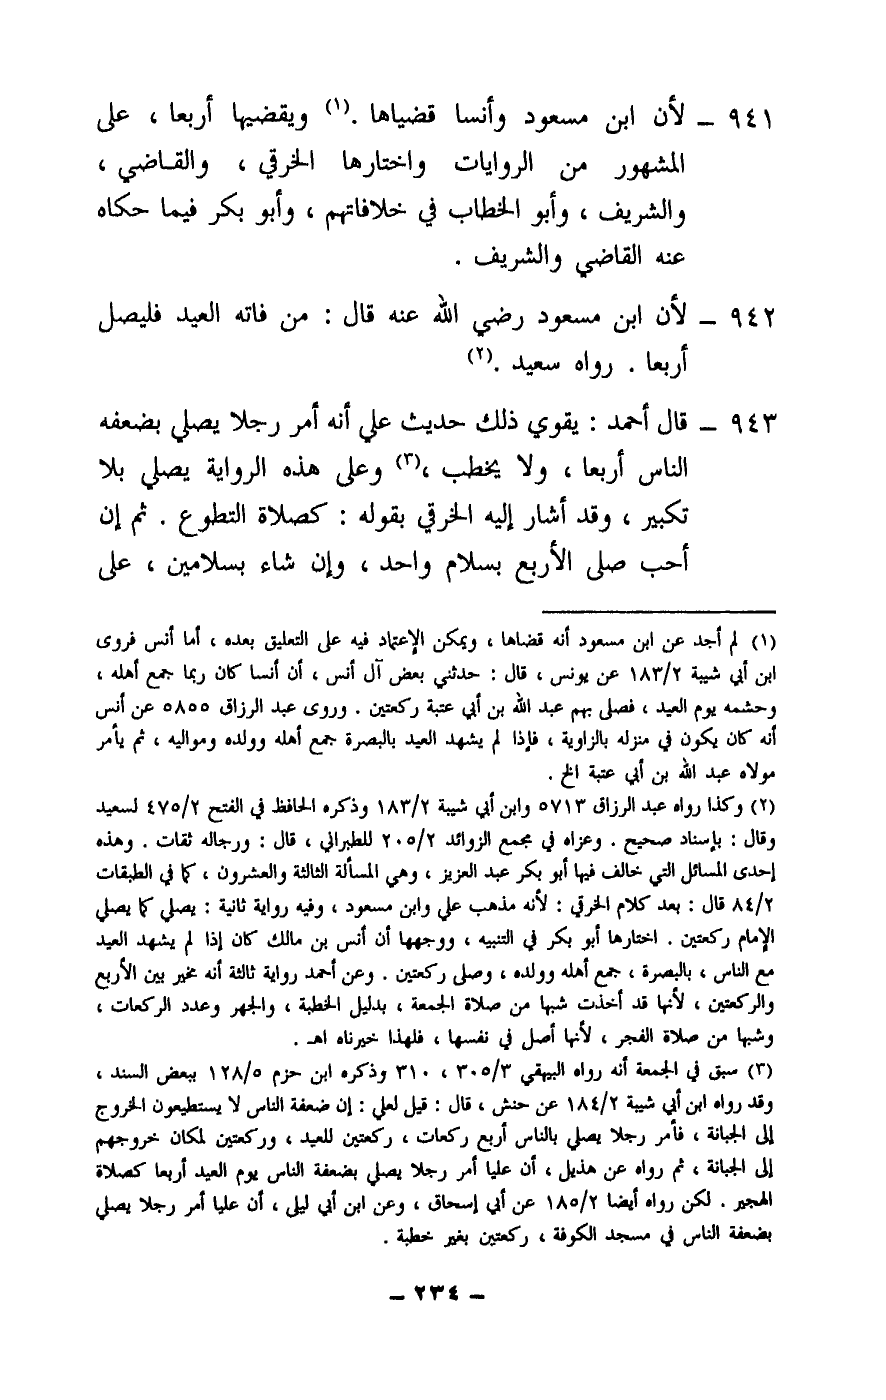 ٩٤١ ــ لأن ابن مسعود وأنسا قضياها .(١) ويقضيها أربعا ، على
المشهور من الروايات واختارها الخرقي ، والقـاضي ،
والشريف ، وأبو الخطاب في خلافاتهم ، وأبو بكر فيما حكاه
عنه القاضي والشريف .
٩٤٢ ــ لأن ابن مسعود رضي الله عنه قال : من فاته العيد فليصل
أربعا . رواه سعيد .(٢)
٩٤٣ ــ قال أحمد : يقوي ذلك حديث علي أنه أمر رجلا يصلي بضعفه
الناس أربعا ، ولا يخطب ،(٣) وعلى هذه الرواية يصلي بلا
تكبير ، وقد أشار إليه الخرقي بقوله : كصلاة التطوع . ثم إن
أحب صلى الأربع بسلام واحد ، وإن شاء بسلامين ، على
(١) لم أجد عن ابن مسعود أنه قضاها ، ويمكن الإعتماد فيه على التعليق بعده ، أما أنس فروى
ابن أبي شيبة ١٨٣/٢ عن يونس ، قال : حدثني بعض آل أنس ، أن أنسا كان ربما جمع أهله ،
وحشمه يوم العيد ، فصلى بهم عبد الله بن أبي عتبة ركعتين . وروى عبد الرزاق ٥٨٥٥ عن أنس
أنه كان يكون في منزله بالزاوية ، فإذا لم يشهد العيد بالبصرة جمع أهله وولده ومواليه ، ثم يأمر
مولاه عبد الله بن أبي عتبة الخ .
(٢) وكذا رواه عبد الرزاق ٥٧١٣ وابن أبي شيبة ١٨٣/٢ وذكره الحافظ في الفتح ٤٧٥/٢ لسعيد
وقال : بإسناد صحيح . وعزاه في مجمع الزوائد ٢٠٥/٢ للطبراني ، قال : ورجاله ثقات . وهذه
إحدى المسائل التي خالف فيها أبو بكر عبد العزيز ، وهي المسألة الثالثة والعشرون ، كما في الطبقات
٨٤/٢ قال : بعد كلام الخرقي : لأنه مذهب علي وابن مسعود ، وفيه رواية ثانية : يصلي كما يصلي
الإمام ركعتين . اختارها أبو بكر في التنبيه ، ووجهها أن أنس بن مالك كان إذا لم يشهد العيد
مع الناس ، بالبصرة ، جمع أهله وولده ، وصلى ركعتين . وعن أحمد رواية ثالثة أنه مخير بين الأربع
والركعتين ، لأنها قد أخذت شبها من صلاة الجمعة ، بدليل الخطبة ، والجهر وعدد الركعات ،
وشبها من صلاة الفجر ، لأنها أصل في نفسها ، فلهذا خيرناه اهـ .
(٣) سبق في الجمعة أنه رواه البيهقي ٣٠٥/٣ ، ٣١٠ وذكره ابن حزم ١٢٨/٥ ببعض السند ،
وقد رواه ابن أبي شيبة ١٨٤/٢ عن حنش ، قال : قيل لعلي : إن ضعفة الناس لا يستطيعون الخروج
إلى الجبانة ، فأمر رجلا يصلي بالناس أربع ركعات ، ركعتين للعيد ، وركعتين لمكان خروجهم
إلى الجبانة ، ثم رواه عن هذيل ، أن عليا أمر رجلا يصلي بضعفة الناس يوم العيد أربعا كصلاة
الهجير . لكن رواه أيضا ١٨٥/٢ عن أبي إسحاق ، وعن ابن أبي ليلى ، أن عليا أمر رجلا يصلي
بضعفة الناس في مسجد الكوفة ، ركعتين بغير خطبة .
ــ ٢٣٤ ــ